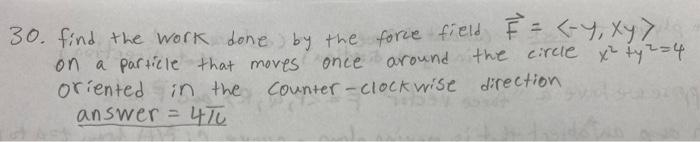 30. find the work done by the force field F⃗ = <-y, xy>
on a particle that moves once around the circle x²+y²=4
oriented in the counter-clockwise direction
answer = 4π